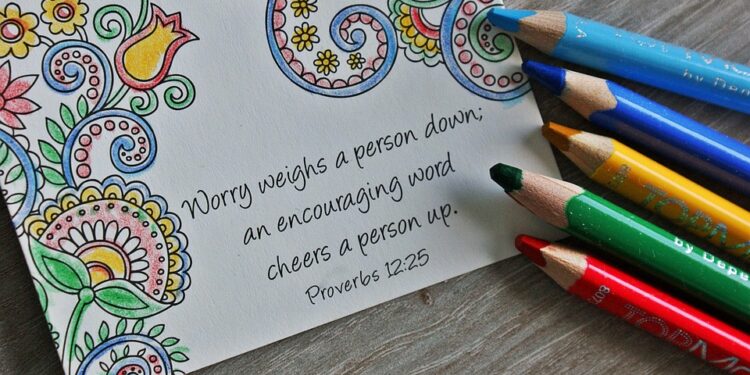 Worry weighs a person down;
an encouraging word
cheers a person up.
Proverbs 12:25
by Den
by Depe